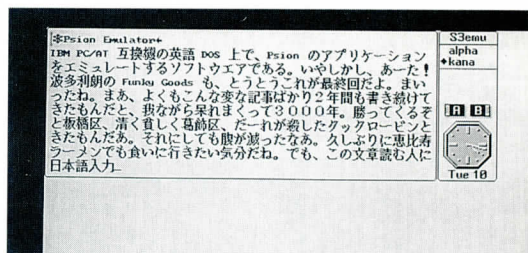 ※Psion Emulator+
IBM PC/AT 互換機の英語 DOS 上で、Psion のアプリケーション
をエミュレートするソフトウエアである。いやしかし、あーた！
波多利朗の Funky Goods も、とうとうこれが最終回だよ。まい
ったね。まあ、よくもこんな変な記事ばかり２年間も書き続けて
きたもんだと、我ながら呆れまくって３０００年。勝ってくるぞ
と板橋区、清く貧しく葛飾区、だーれが殺したクックロービンと
きたもんだあ。それにしても腹が減ったなあ。久しぶりに恵比寿
ラーメンでも食いに行きたい気分だね。でも、この文章読む人に
日本語入力_
S3emu
alpha
◆kana
A B
Tue 10